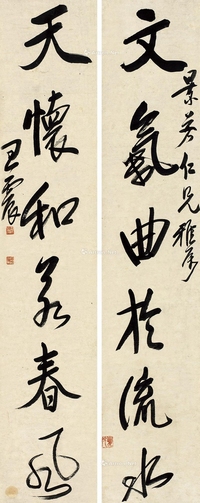 文氣曲於流水
景芳仁兄雅屬
天懷和若春風
王震